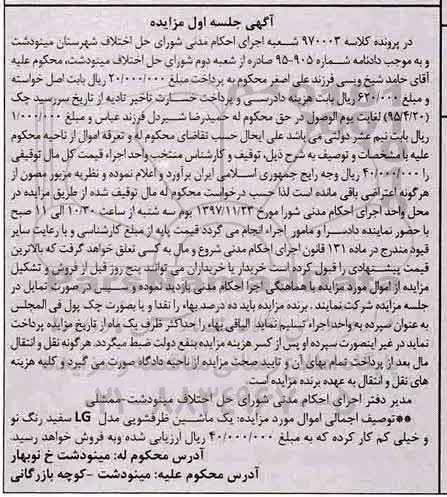 آگهی جلسه اول مزایده
در پرونده کلاسه ۹۷۰۰۰۳ شعبه اجرای احکام مدنی شورای حل اختلاف شهرستان مینودشت
و به موجب دادنامه شماره ۹۰۵-۹۵ صادره از شعبه دوم شورای حل اختلاف مینودشت، محکوم علیه
آقای حامد شیخ ویسی فرزند علی اصغر محکوم به پرداخت مبلغ ۲۰/۰۰۰/۰۰۰ ریال بابت اصل خواسته
و مبلغ ۶۲۰/۰۰۰ ریال بابت هزینه دادرسی و پرداخت خسارت تاخیر تادیه از تاریخ سررسید چک
(۹۵/۴/۲۰) لغایت یوم الوصول در حق محکوم له حمیدرضا شیردل فرزند عباس و مبلغ ۱/۰۰۰/۰۰۰
ریال بابت نیم عشر دولتی می باشد علی ایحال حسب تقاضای محکوم له و تعرفه اموال از ناحیه محکوم
علیه با مشخصات و توصیف به شرح ذیل، توقیف و کارشناس منتخب واحد اجراء قیمت کل مال توقیفی
را ۴۰/۰۰۰/۰۰۰ ریال وجه رایج جمهوری اسلامی ایران برآورد و اعلام نموده و نظریه مزبور مصون از
هرگونه اعتراضی باقی مانده است لذا حسب درخواست محکوم له مال توقیف شده از طریق مزایده در
محل واحد اجرای احکام مدنی شورا مورخ ۱۳۹۷/۱۱/۲۳ یوم سه شنبه از ساعت ۱۰/۳۰ الی ۱۱ صبح
با حضور نماینده دادسرا و مامور اجراء انجام می گردد قیمت پایه از مبلغ کارشناسی و با رعایت سایر
قیود مندرج در ماده ۱۳۱ قانون اجرای احکام مدنی شروع و مال به کسی تعلق خواهد گرفت که بالاترین
قیمت پیشنهادی را قبول کرده است خریدار یا خریداران می توانند پنج روز قبل از فروش و تشکیل
مزایده از اموال مورد مزایده با هماهنگی اجرا احکام مدنی بازدید نموده وسپس در صورت تمایل در
جلسه مزایده شرکت نمایند . برنده مزایده باید ده درصد بهاء را نقدا و یا بصورت چک پول فی المجلس
به عنوان سپرده به واحد اجراء تسلیم نماید الباقی بهاء را حداکثر ظرف یک ماه از تاریخ مزایده پرداخت
نماید در غیر اینصورت سپرده او پس از کسر هزینه مزایده بنفع دولت ضبط میگردد. هرگونه نقل و انتقال
مال بعد از پرداخت تمام بهای آن و تایید صحت مزایده از ناحیه دادگاه صورت می گیرد و کلیه هزینه
های نقل و انتقال به عهده برنده مزایده است
مدیر دفتر اجرای احکام مدنی شورای حل اختلاف مینودشت-ممشلی
**توصیف اجمالی اموال مورد مزایده: یک ماشین ظرفشویی مدل LG سفید رنگ نو
و خیلی کم کار کرده که به مبلغ ۴۰/۰۰۰/۰۰۰ ریال ارزیابی شده وبه فروش خواهد رسید.
آدرس محکوم له: مینودشت خ نوبهار
آدرس محکوم علیه: مینودشت -کوچه بازرگانی